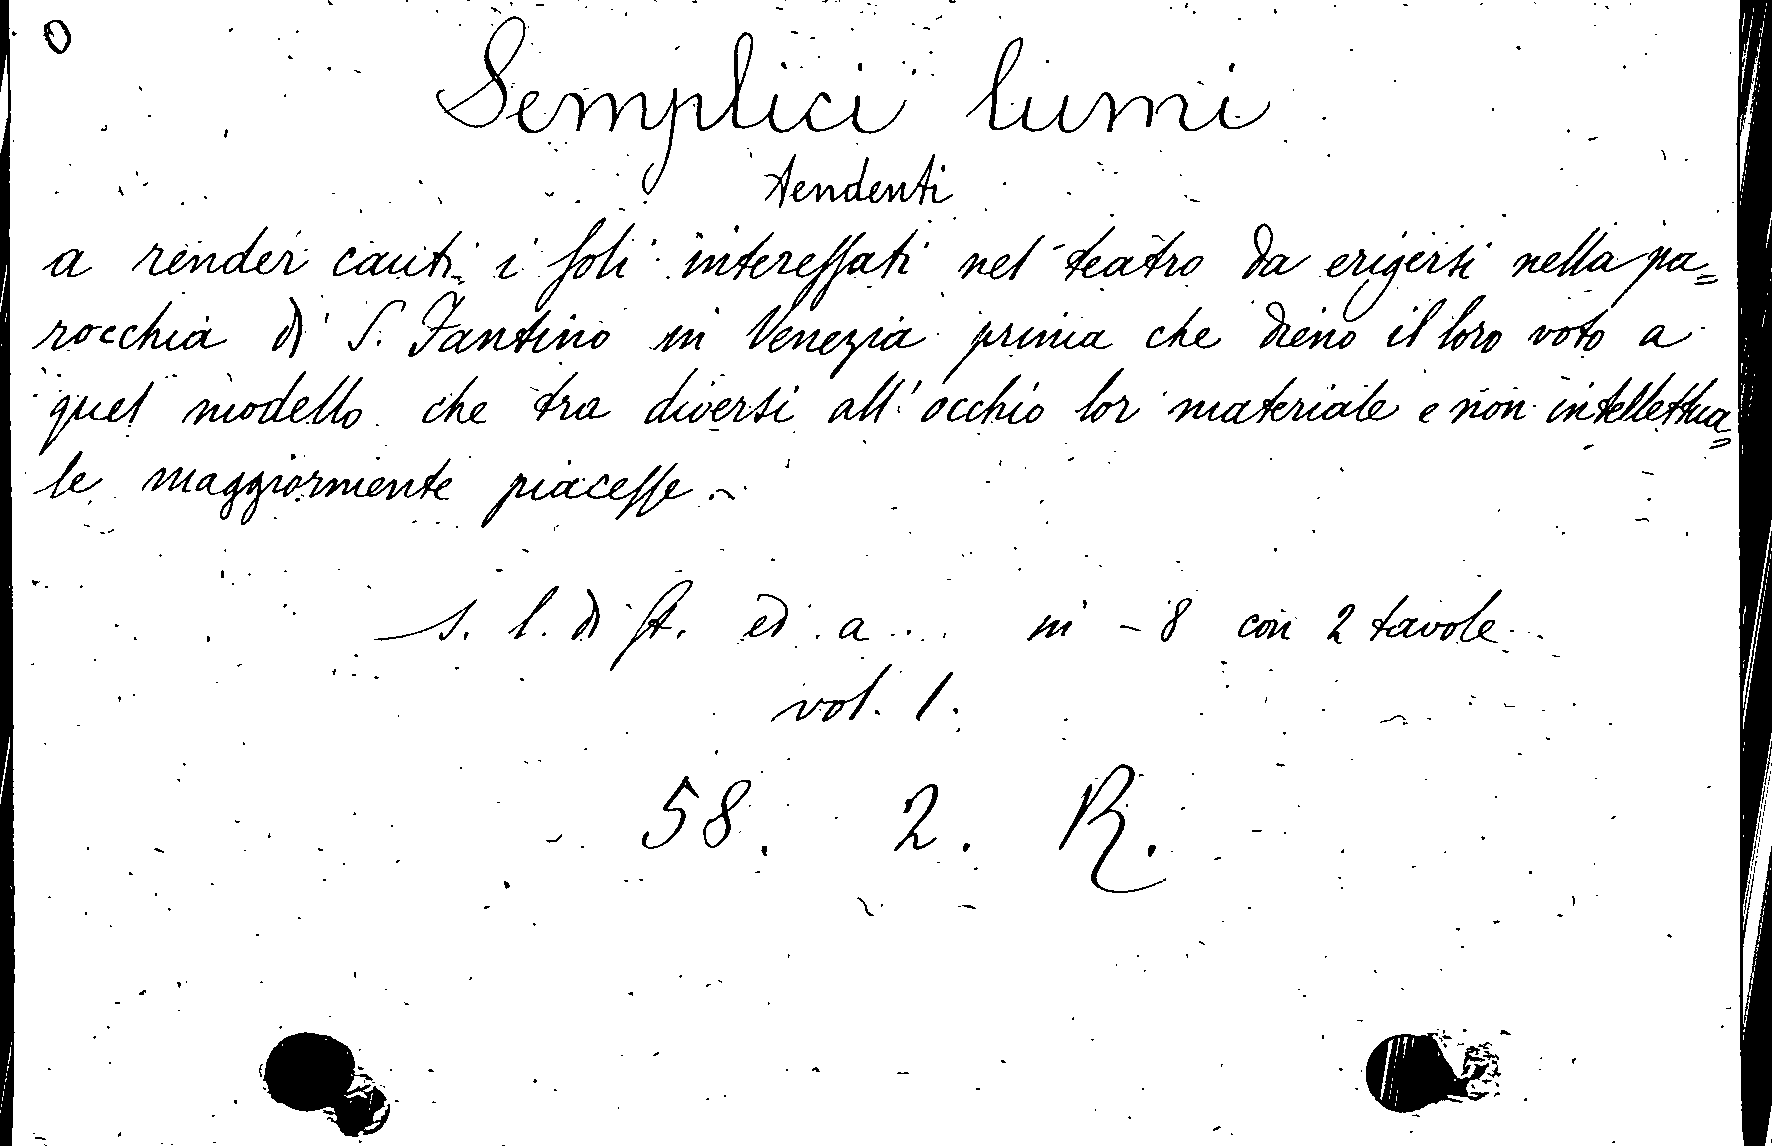 O
Semplici lumi
tendenti
a render cauti i soli interessati nel teatro da erigersi nella pa=
rocchia di S. Fantino in Venezia prima che dieno il loro voto a
quel modello che tra diversi all'occhio lor materiale e non intellettua=
le maggiormente piacesse.
s. l. di st. ed a... in-8 con 2 tavole
vol. 1.
58. 2. R.